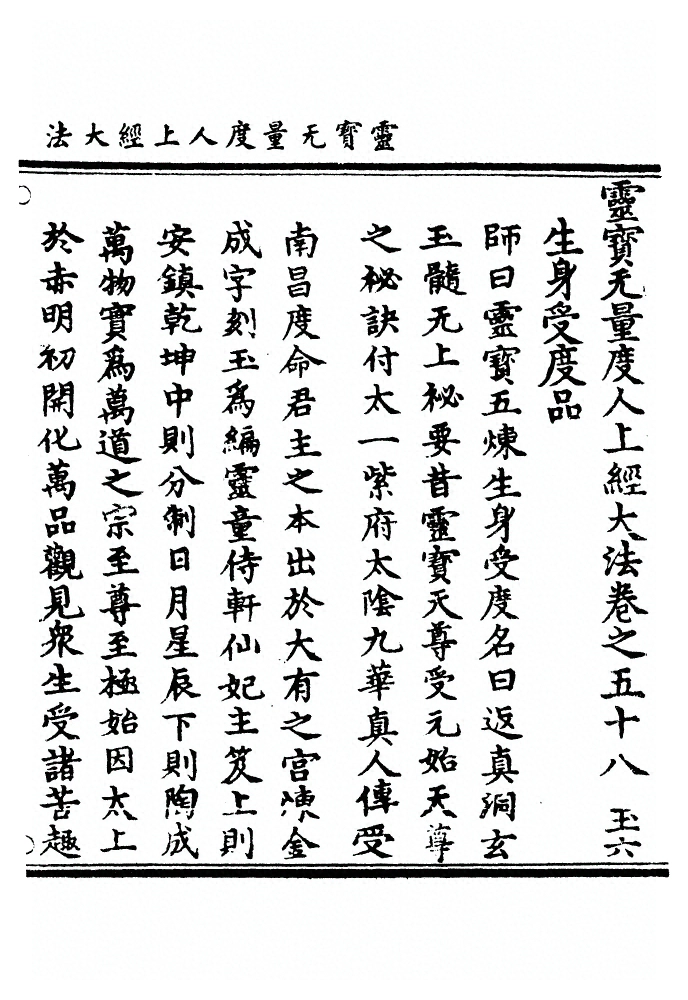 靈寳无量度人上經大法
靈寳无量度人上經大法卷之五十八 玉六
生身受度品
師曰靈寳五煉生身受度名曰返真洞玄
玉髓无上祕要昔靈寳天尊受元始天尊
之祕訣付太一紫府太陰九華真人傳受
南昌度命君主之本出於大有之宮陳金
成字刻玉爲編靈童侍軒仙妃主笈上則
安鎮乾坤中則分制日月星辰下則陶成
萬物實爲萬道之宗至尊至極始因太上
於赤明初開化萬品觀見衆生受諸苦趣